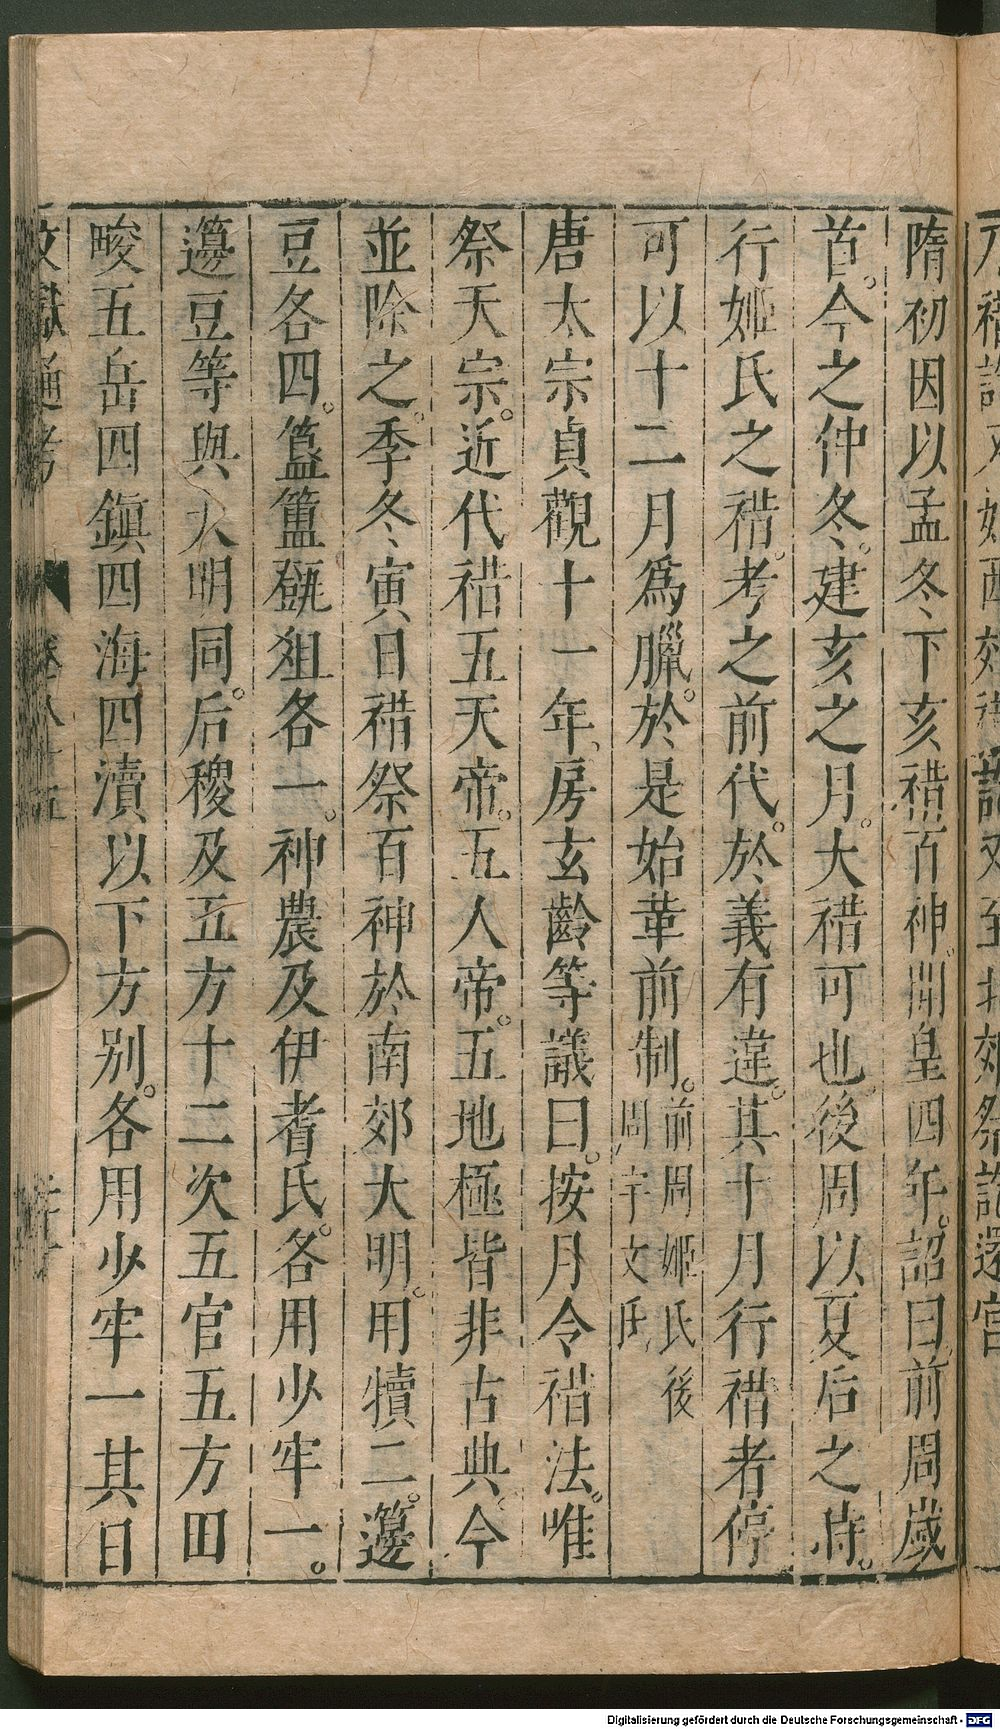 隋初因以孟冬下亥禇百神開皇四年詔曰前周歲
首。今之仲冬。建亥之月。大禇可也後周以夏后之時。
行姬氏之禇。考之前代。於義有違。其十月行禇者停
可以十二月爲臘。於是始革前制。前周姬氏後周宇文氏
唐太宗貞觀十一年房玄齡等議曰。按月令禇法。唯
祭天宗。近代禇五天帝。五人帝。五地極皆非古典。今
並除之。季冬寅日禇祭百神於南郊大明。用犢二。籩
豆各四。簋簠㽅俎各一。神農及伊耆氏。各用少牢一。
籩豆等與大明同。后稷及五方十二次五官五方田
畯五岳四鎮四海四瀆以下方別。各用少牢一其日
文獻通考 卷八十五
Digitalisierung gefördert durch die Deutsche Forschungsgemeinschaft - DFG